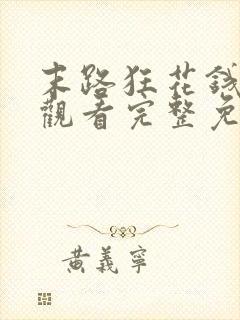 末路狂花錢
觀看完整免
黃義寧